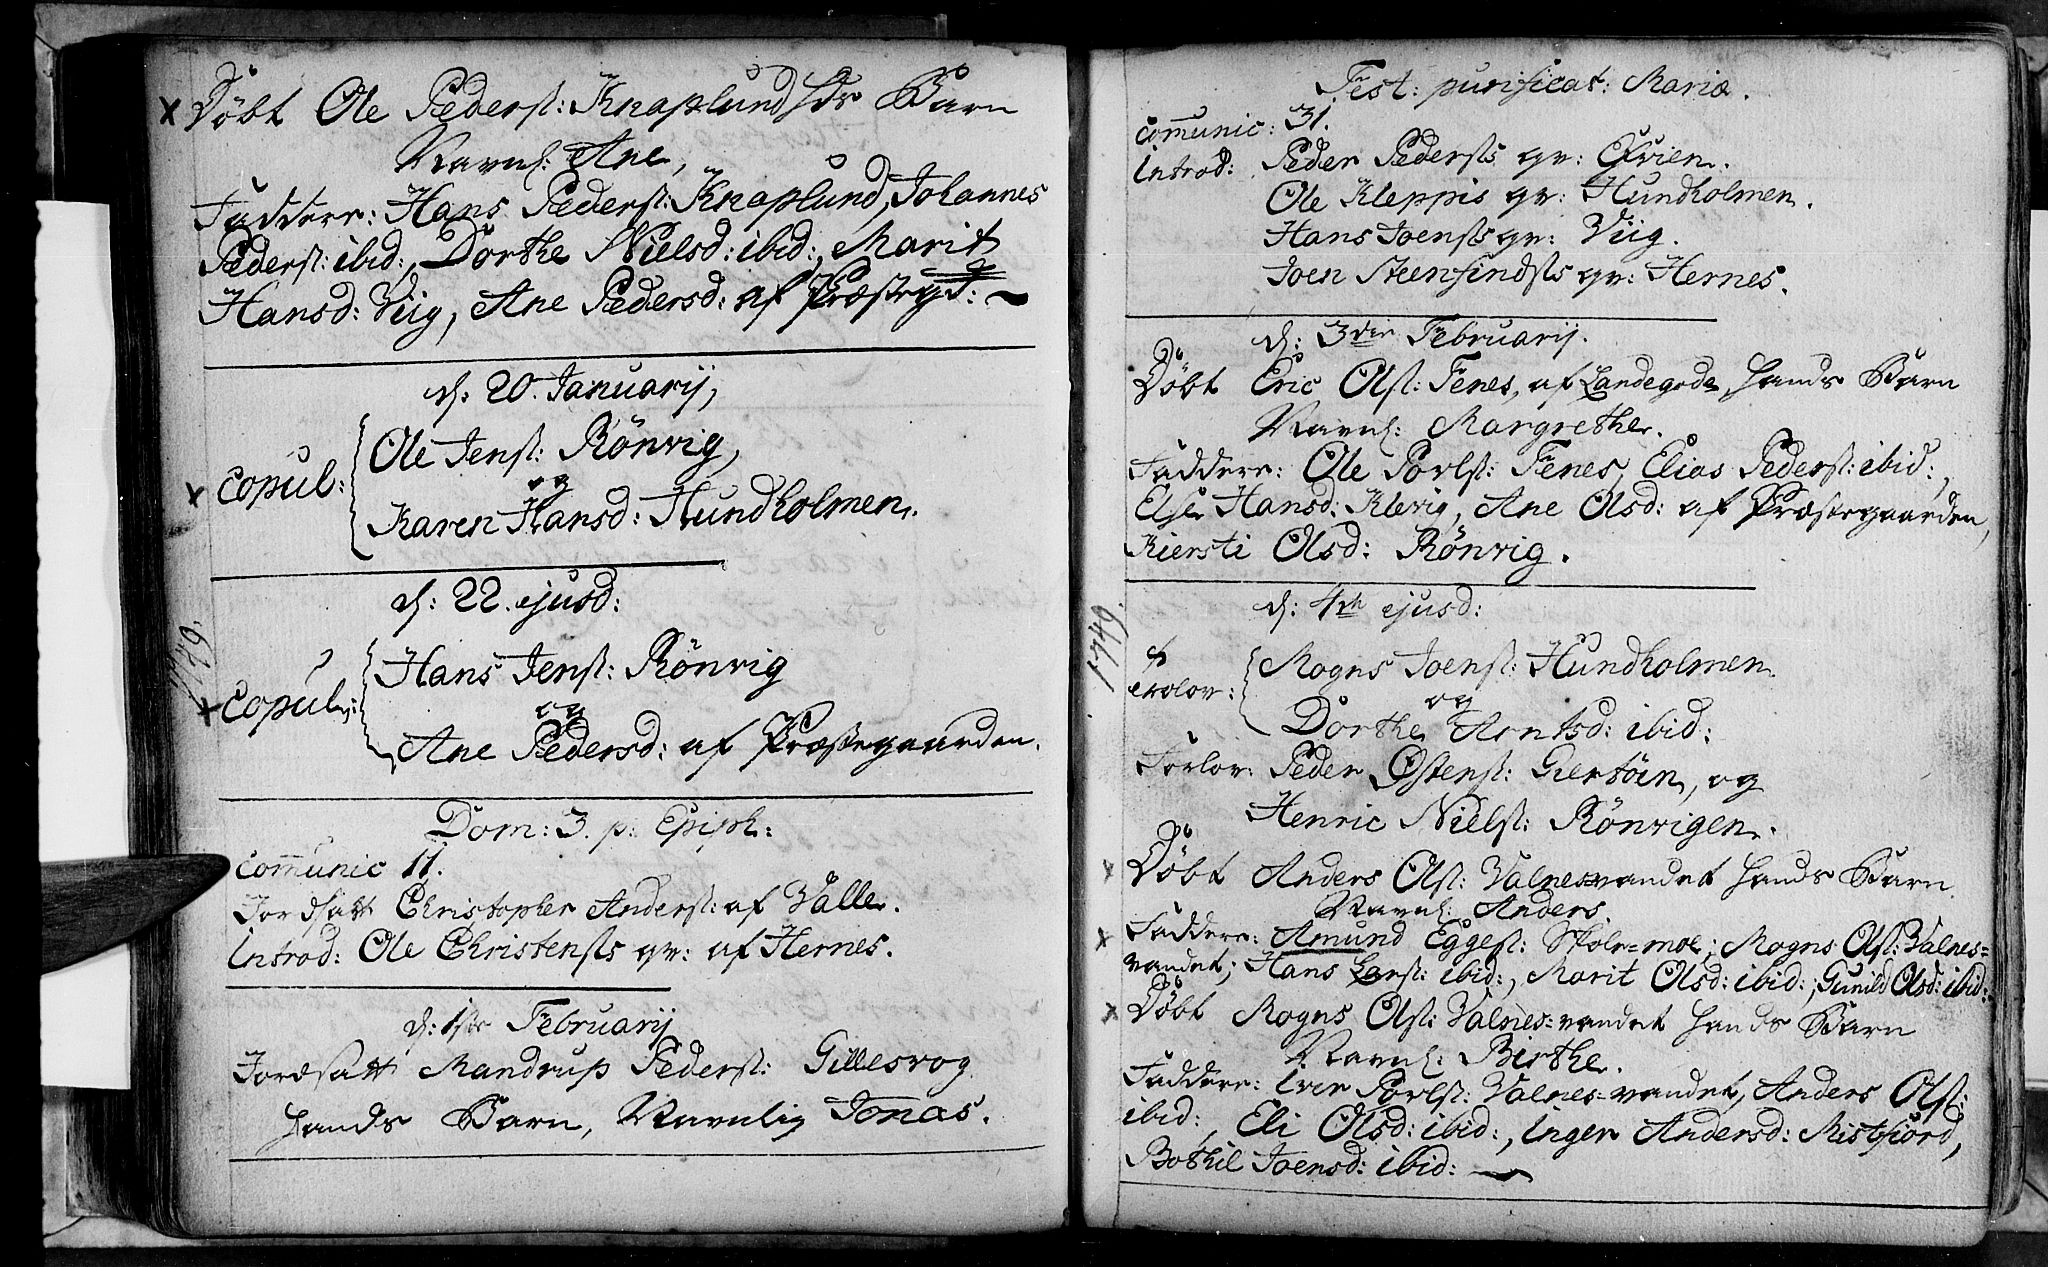 Döbt Ole Pedersl: Knaplund Hs Barn
Navnl: Ane,
Faddere: Hans Pedersl: Knaplund, Johannes
Pedersl: ibid:, Dorthe Nielsd: ibid:, Marit
Hansd: Viig, Ane Pedersd: af Præstegd:
d: 20. Januarij,
Copul: Ole Jensl: Rönvig,
og
Karen Hansd: Hundholmen.
1749.
d: 22. ejusd:
Copul: Hans Jensl: Rönvig
og
Ane Pedersd: af Præstegaarden.
Dom: 3. p: Epiph:
Communic 11.
Jordsatt Christopher Andersl: af Valle.
Introd: Ole Christensls qv: af Hernes.
d: 1ste Februarij
Jordsatt Mandrup Pedersl: Gillesvog
Hands Barn, Navnlig Jonas.
Fest: purificat: Mariæ.
Communic: 31.
Introd: Peder Pedersls qv: Qvien.
Ole Kleppis qv: Hundholmen.
Hans Joensls qv: Viig.
Joen Steensindsls qv: Hernes.
d: 3die Februarij.
Döbt Eric Olsl: Fenes, af Landegode, Hands Barn
Navnl: Margrethe.
Faddere: Ole Povlsl: Fenes, Elias Pedersl: ibid:,
Else Hansd: Klevig, Ane Olsd: af Præstegaarden,
Kiersti Olsd: Rönvig.
1749.
d: 4de ejusd:
Trolov: Mogns Joensl: Hundholmen
og
Dorthe Arntsd: ibid:
Forlov: Peder Østensl: Giertöen, og
Henric Nielsl: Rönvigen.
Döbt Anders Olsl: Valnesvandet Hands Barn
Navnl: Anders.
Faddere: Amund Eggesl: Skole-moe; Mogns Olsl: Valnes=
vandet; Hans Larsl: ibid:, Marit Olsd: ibid:, Gunild Olsd: ibid:
Döbt Mogns Olsl: Valnes=vandet Hands Barn
Navnl: Birthe.
Faddere: Iver Povlsl: Valnes=vandet, Anders Olsl:
ibid:, Eli Olsd: ibid:, Inger Andersd: Mistfiord,
Bothil Joensd: ibid: